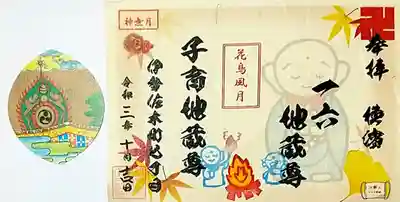 奉拝 横濱
一六
地蔵尊
花鳥風月
子育地蔵尊
伊勢佐木町四丁目
令和三年十月吉日
神無月